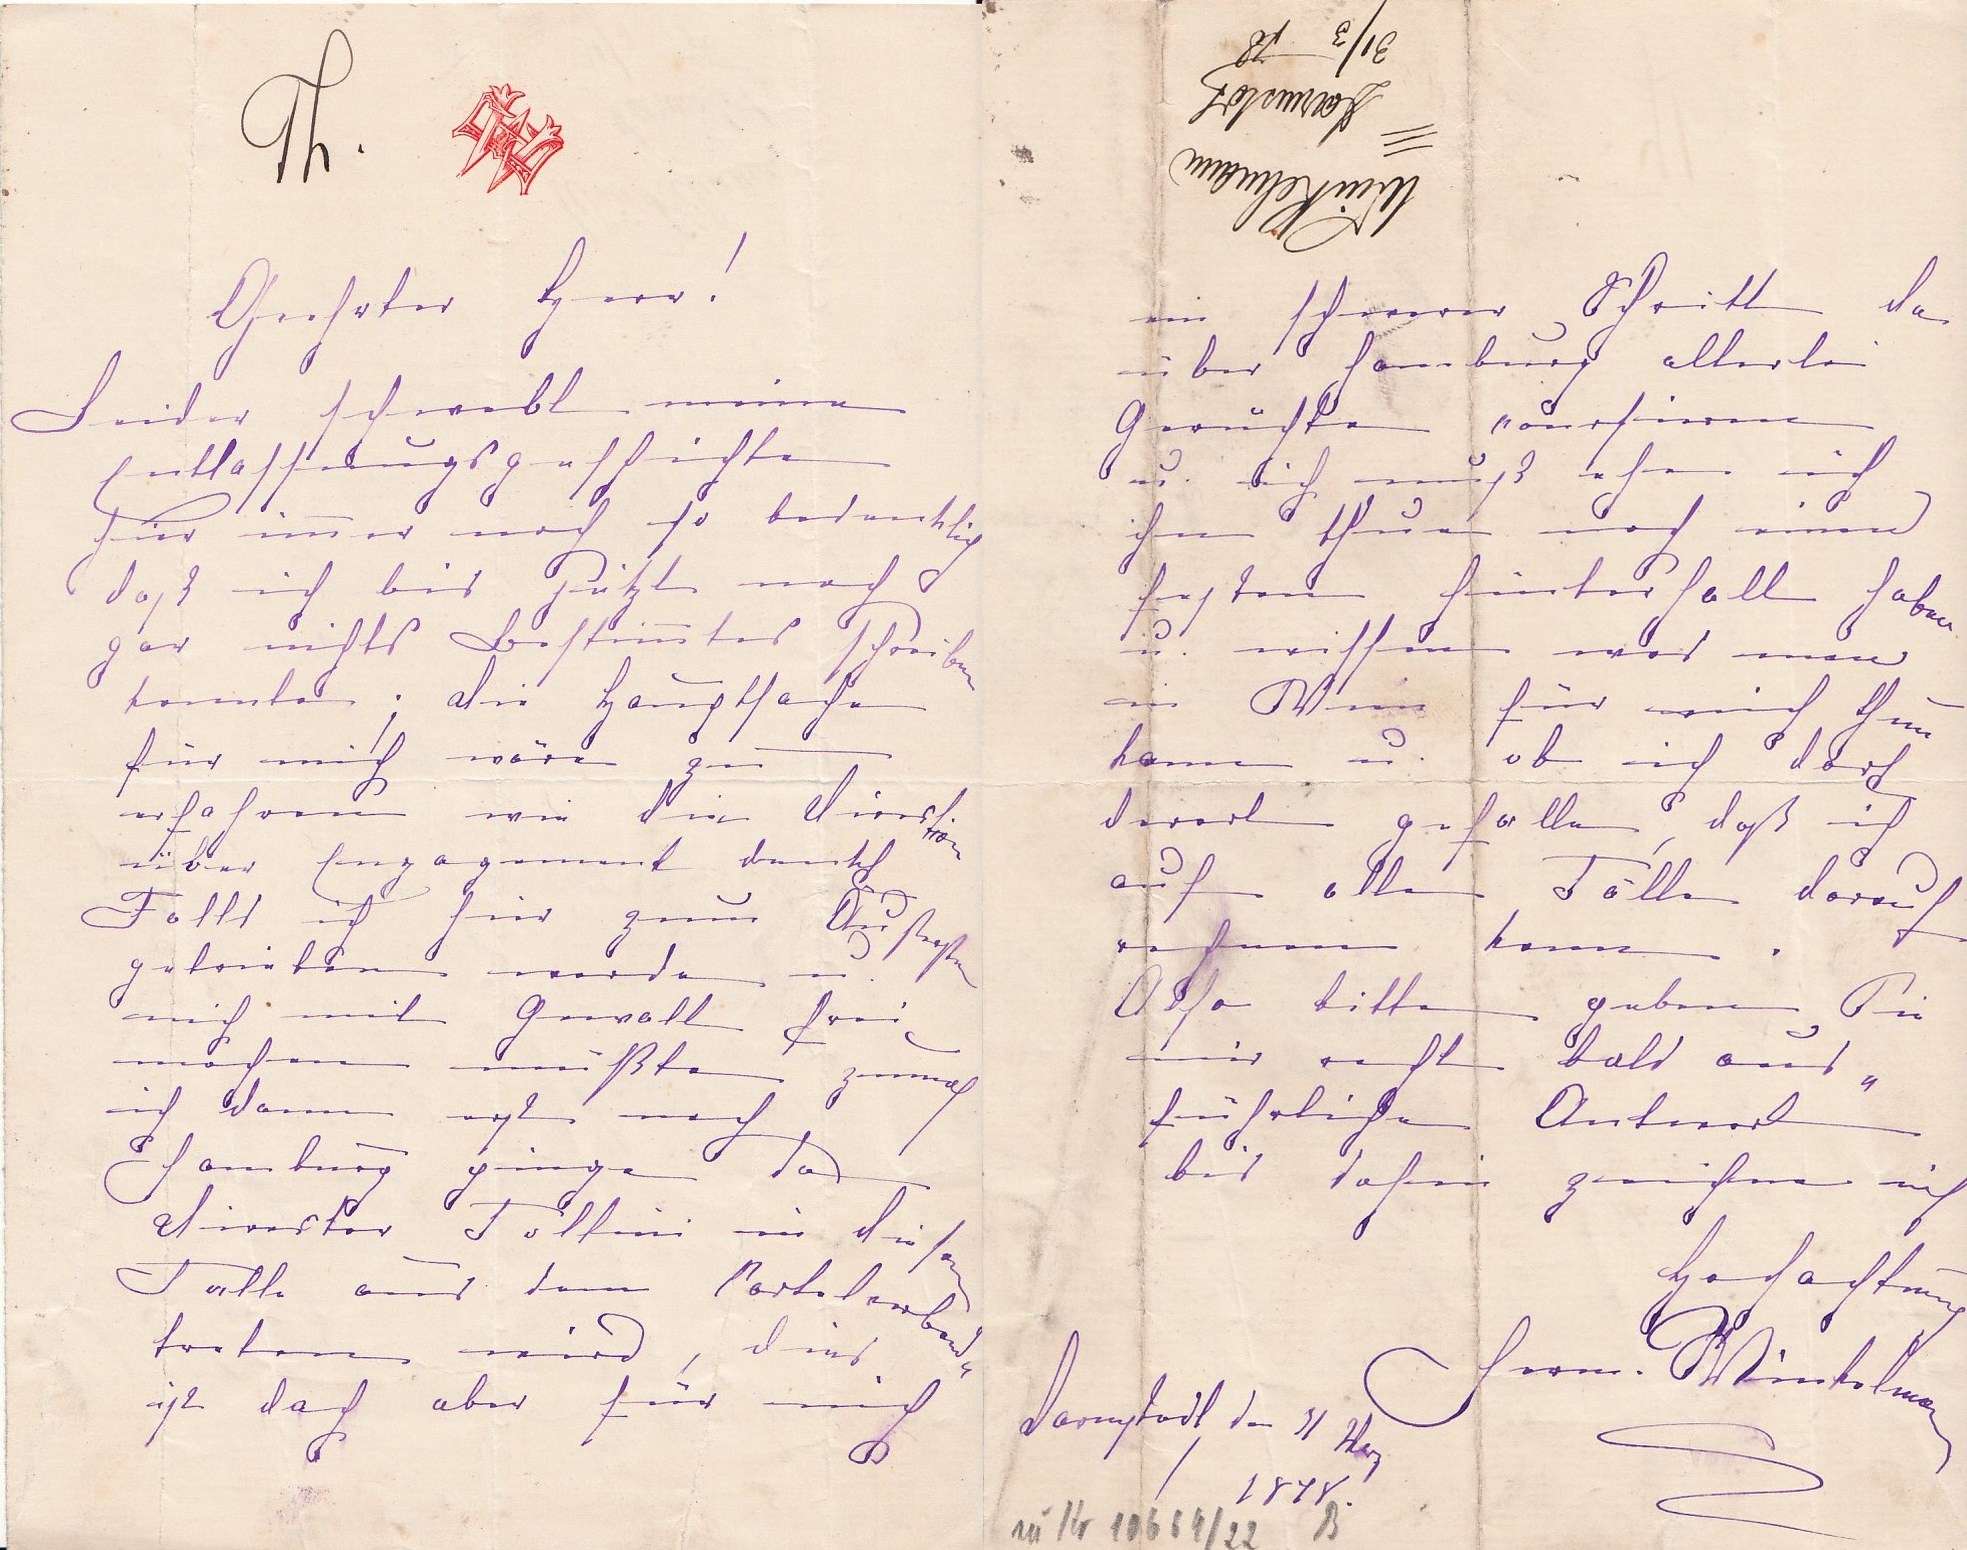 Th.
Geehrter Herr!
Leider schwebt meine
Entlassungsgeschichte
hier immer noch so bedenklich
daß ich bis jetzt noch
gar nichts Bestimmtes schreiben
konnte; die Hauptsache
für mich wäre zu
erfahren wie die Direction
über Engagement denkt
Falls ich hier zum Äußersten
getrieben werde u.
mich mit Gewalt frei
machen müßte zumal
ich dann erst nach
Hamburg ginge da
Director Pollini in diesem
Falle aus dem Cartelverbande
treten wird, dies
ist doch aber für mich
Winkelmann
Darmstdt
31/3 78
ein schwerer Schritt da
über Hamburg allerlei
Gerüchte coursiren
u. ich muß ehe ich
ihn thue noch einen
festen Hinterhalt haben
u. wissen was man
in Wien für mich thun
kann u. ob ich dort
derart gefalle, daß ich
auf alle Fälle darauf
rechnen kann.
Also bitte geben Sie
mir recht bald aus„
führliche Antwort
bis dahin zeichne ich
Hochachtung
Herm. Winkelmann
Darmstadt den 31 März
1878.
zu Nr 10664/22 B